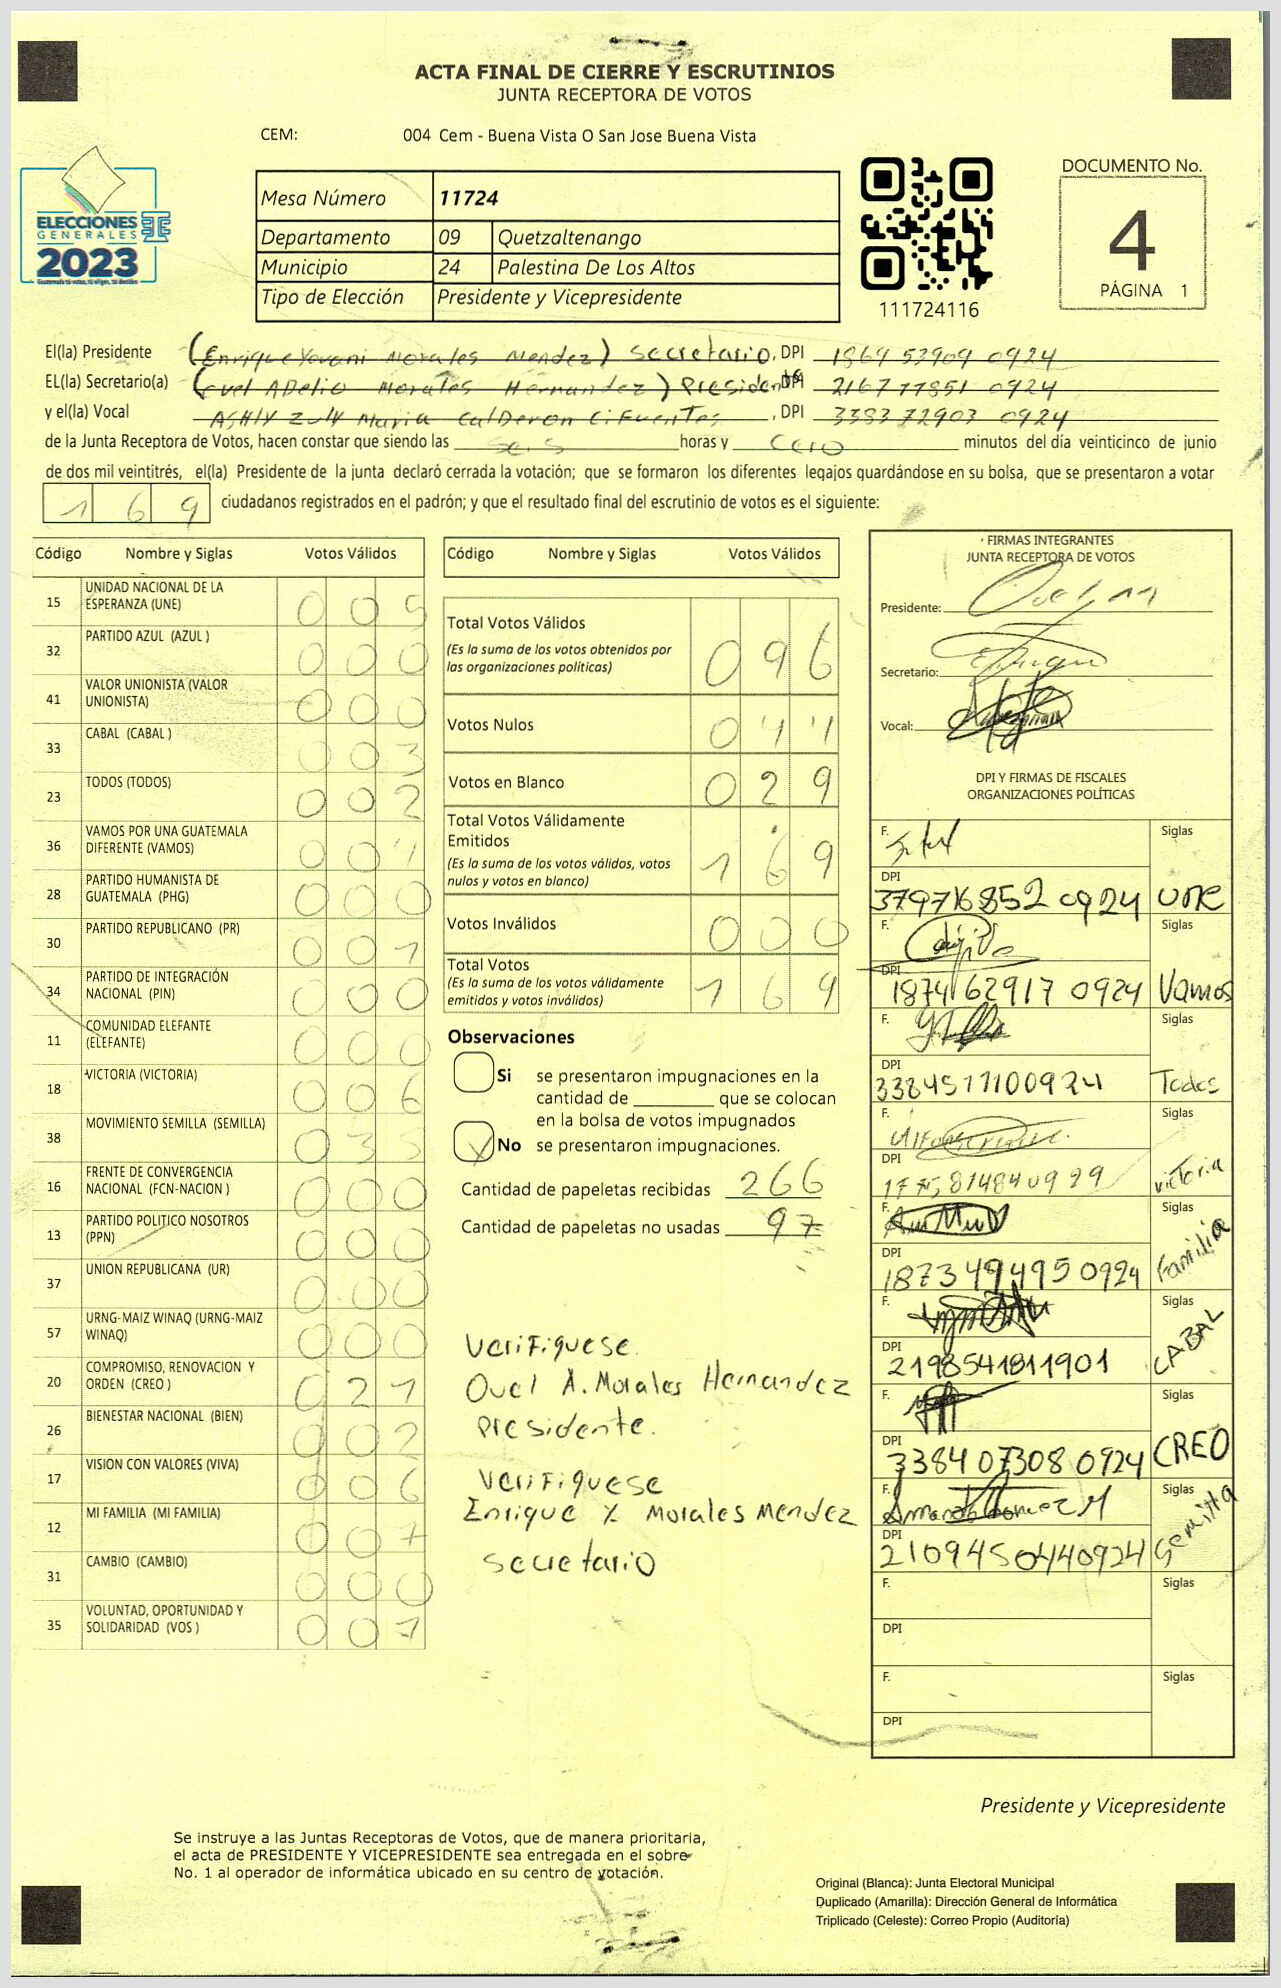 ACTA FINAL DE CIERRE Y ESCRUTINIOS
JUNTA RECEPTORA DE VOTOS
CEM: 004 Cem - Buena Vista O San Jose Buena Vista
ELECCIONES
GENERALES
2023
Mesa Número 11724
Departamento 09 Quetzaltenango
Municipio 24 Palestina De Los Altos
Tipo de Elección Presidente y Vicepresidente
111724116
DOCUMENTO No.
4
PÁGINA 1
El(la) Presidente (Enrique Yovani Morales Mendez) secretario, DPI 1869 53909 0924
EL(la) Secretario(a) (ovel ADelio Morales Hernandez) Presidente DPI 2167 77851 0924
y el(la) Vocal ASHLY Zuly Maria CalDeron CiFuenTes, DPI 3383 72903 0924
de la Junta Receptora de Votos, hacen constar que siendo las seis horas y cero minutos del día veinticinco de junio
de dos mil veintitrés, el(la) Presidente de la junta declaró cerrada la votación; que se formaron los diferentes legajos quardándose en su bolsa, que se presentaron a votar
1 6 9 ciudadanos registrados en el padrón; y que el resultado final del escrutinio de votos es el siguiente:
Código Nombre y Siglas Votos Válidos
15 UNIDAD NACIONAL DE LA ESPERANZA (UNE) 0 0 5
32 PARTIDO AZUL (AZUL ) 0 0 0
41 VALOR UNIONISTA (VALOR UNIONISTA) 0 0 0
33 CABAL (CABAL ) 0 0 3
23 TODOS (TODOS) 0 0 2
36 VAMOS POR UNA GUATEMALA DIFERENTE (VAMOS) 0 0
28 PARTIDO HUMANISTA DE GUATEMALA (PHG) 0 0 0
30 PARTIDO REPUBLICANO (PR) 0 0 1
34 PARTIDO DE INTEGRACIÓN NACIONAL (PIN) 0 0 0
11 COMUNIDAD ELEFANTE (ELEFANTE) 0 0 0
18 VICTORIA (VICTORIA) 0 0 6
38 MOVIMIENTO SEMILLA (SEMILLA) 0 3 5
16 FRENTE DE CONVERGENCIA NACIONAL (FCN-NACION ) 0 0 0
13 PARTIDO POLITICO NOSOTROS (PPN) 0 0 0
37 UNION REPUBLICANA (UR) 0 0 0
57 URNG-MAIZ WINAQ (URNG-MAIZ WINAQ) 0 0 0
20 COMPROMISO, RENOVACION Y ORDEN (CREO ) 0 2 1
26 BIENESTAR NACIONAL (BIEN) 0 0 2
17 VISION CON VALORES (VIVA) 0 0 6
12 MI FAMILIA (MI FAMILIA) 0 0 7
31 CAMBIO (CAMBIO) 0 0 0
35 VOLUNTAD, OPORTUNIDAD Y SOLIDARIDAD (VOS ) 0 0 1
Código Nombre y Siglas Votos Válidos
Total Votos Válidos 0 9 6
(Es la suma de los votos obtenidos por
las organizaciones políticas)
Votos Nulos 0 4 4
Votos en Blanco 0 2 9
Total Votos Válidamente
Emitidos 1 6 9
(Es la suma de los votos válidos, votos
nulos y votos en blanco)
Votos Inválidos 0 0 0
Total Votos 1 6 9
(Es la suma de los votos válidamente
emitidos y votos inválidos)
Observaciones
Si se presentaron impugnaciones en la
cantidad de ________ que se colocan
en la bolsa de votos impugnados
X No se presentaron impugnaciones.
Cantidad de papeletas recibidas 266
Cantidad de papeletas no usadas 97
Verifiquese.
Ovel A. Morales Hernandez
Presidente.
Verifiquese
Enrique Y. Morales Mendez
secretario
FIRMAS INTEGRANTES
JUNTA RECEPTORA DE VOTOS
Presidente:
Secretario:
Vocal:
DPI Y FIRMAS DE FISCALES
ORGANIZACIONES POLÍTICAS
F. Siglas
DPI
379716852 0924 une
F. Siglas
DPI
1874 62917 0924 Vamos
F. Siglas
DPI
3384577100924 Todos
F. Siglas
DPI
victoria
F. Siglas
DPI
1873 494950924 Familia
F. Siglas
DPI
2198541811901 CABAL
F. Siglas
DPI
3384 07308 0924 CREO
F. Siglas
DPI
2109450440924 Semilla
F. Siglas
DPI
F. Siglas
DPI
Presidente y Vicepresidente
Se instruye a las Juntas Receptoras de Votos, que de manera prioritaria,
el acta de PRESIDENTE Y VICEPRESIDENTE sea entregada en el sobre
No. 1 al operador de informática ubicado en su centro de votación.
Original (Blanca): Junta Electoral Municipal
Duplicado (Amarilla): Dirección General de Informática
Triplicado (Celeste): Correo Propio (Auditoría)